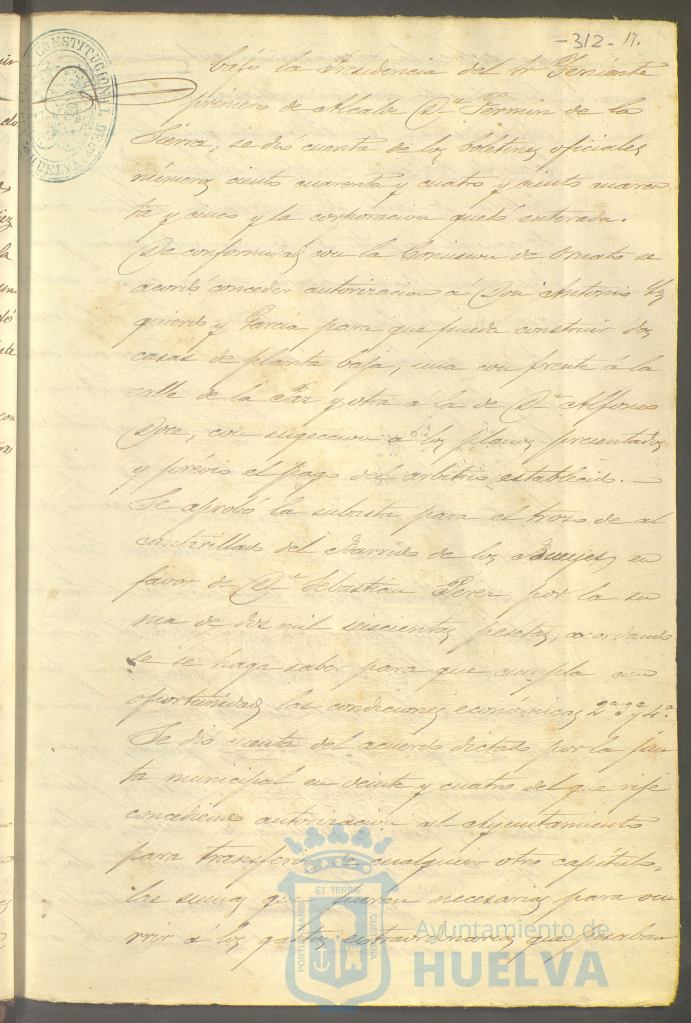 -312- 17.
CONSTITUCIONAL DE HUELVA
bajo la Presidencia del Sr Teniente
primero de Alcalde Dn Fermin de la
Sierra, se dió cuenta de los boletines oficiales
números ciento cuarenta y cuatro y ciento cuaren
ta y cinco y la corporacion quedó enterada.
De conformidad con la Comision de Ornato se
acordó conceder autorizacion á Don Antonio Iz
quierdo y Garcia para que pueda construir dos
casas de planta baja, una con frente á la
calle de la Paz y otra a la de Dn Alfonso
Doce, con sugeccion á los planos presentados
y prévio el pago del arbitrio establecido.—
Se aprobó la subasta para el trozo de al
cantarillas del Barrio de los Bueyes, en
favor de Dn Sebastian Perez por la su
ma de dos mil seiscientas pesetas, acordando
se se haga saber para que cumpla con
oportunidad las condiciones económicas 2ª 3ª y 4ª.
Se dió cuenta del acuerdo dictado por la jun
ta municipal en veinte y cuatro del que rije
concediendo autorizacion al Ayuntamiento
para transferir de cualquier otro capitulo,
las sumas que fueran necesarias para ocu
rrir á los gastos extraordinarios que pesaban
PORTUS MARIS ET TERRAE CUSTODIA
Ayuntamiento de
HUELVA